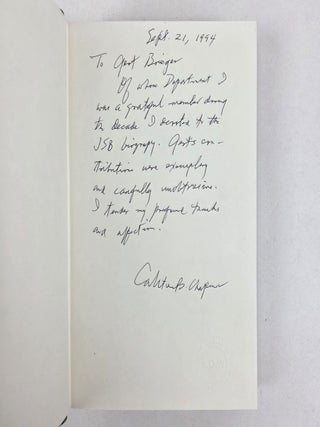 Sept. 21, 1994
To Gert Brieger
Of whose Department I
was a grateful member during
the decade I devoted to the
JSB biography. Gert's con-
tributions were exemplary
and carefully unobtrusive.
I tender my profound thanks
and affection.
Carleton B. Chapman